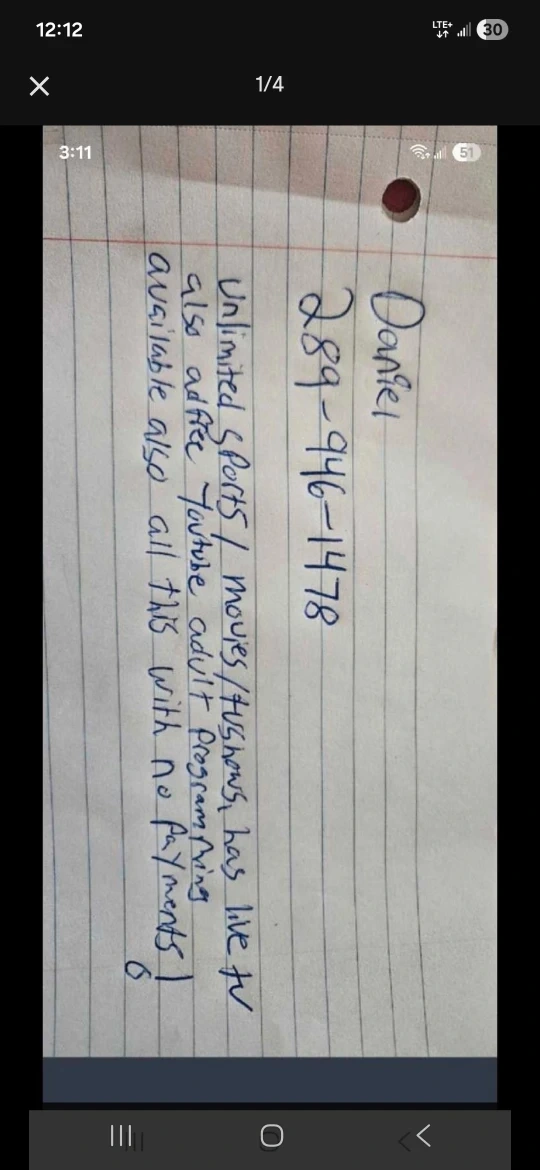 12:12
LTE+
30
1/4
3:11
51
Daniel
289-946-1478
Unlimited sports/movies/tvshows, has live tv
also adfree Youtube adult programming
available also all this with no payments!